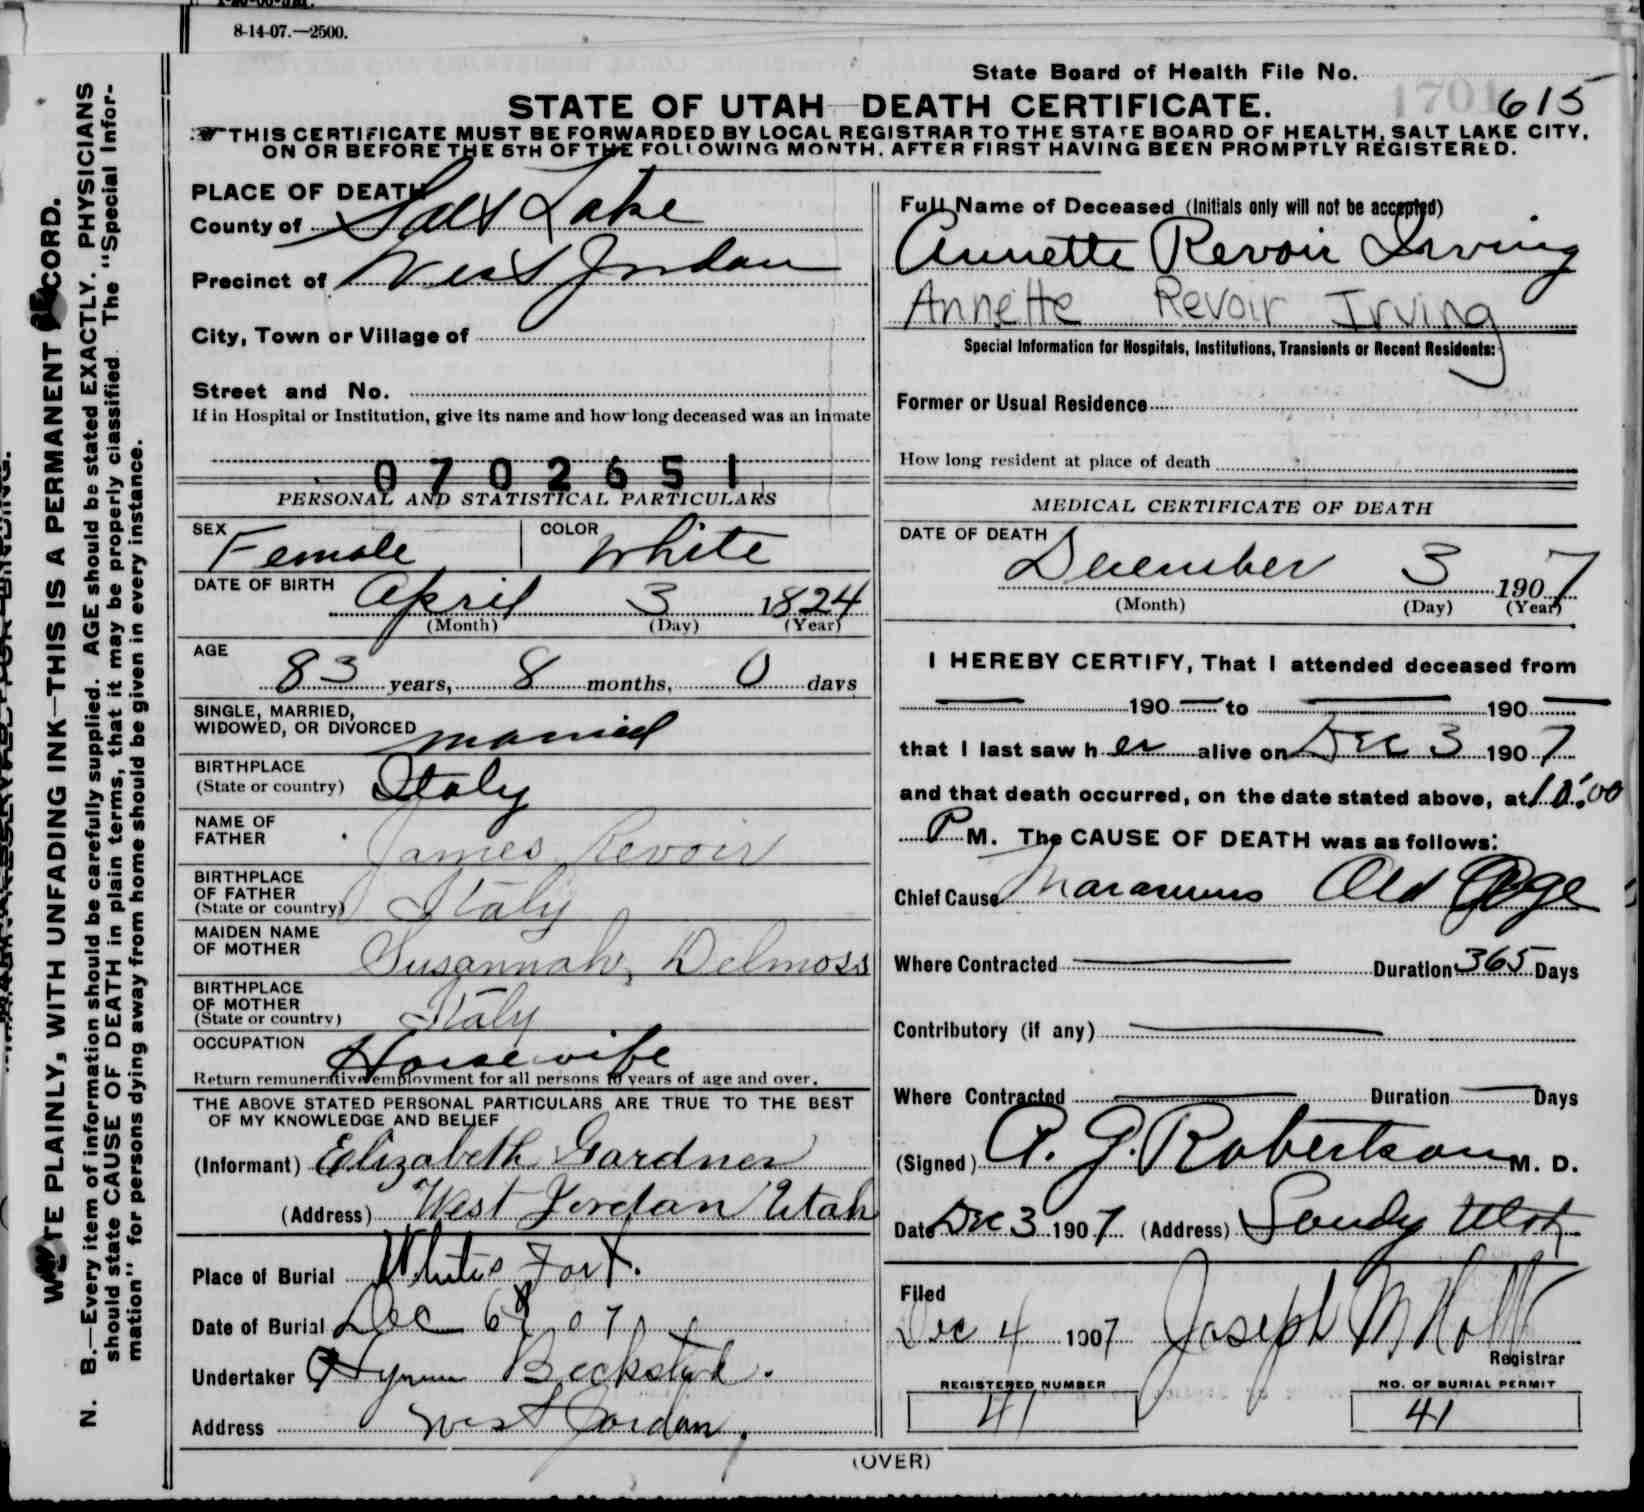 8-14-07.—2500.
State Board of Health File No. 615
STATE OF UTAH—DEATH CERTIFICATE.
THIS CERTIFICATE MUST BE FORWARDED BY LOCAL REGISTRAR TO THE STATE BOARD OF HEALTH, SALT LAKE CITY,
ON OR BEFORE THE 5TH OF THE FOLLOWING MONTH, AFTER FIRST HAVING BEEN PROMPTLY REGISTERED.
WRITE PLAINLY, WITH UNFADING INK—THIS IS A PERMANENT RECORD.
N. B.—Every item of information should be carefully supplied. AGE should be stated EXACTLY. PHYSICIANS
should state CAUSE OF DEATH in plain terms, that it may be properly classified. The "Special Infor-
mation" for persons dying away from home should be given in every instance.
PLACE OF DEATH
County of Salt Lake
Precinct of West Jordan
City, Town or Village of
Street and No.
If in Hospital or Institution, give its name and how long deceased was an inmate
0702651
PERSONAL AND STATISTICAL PARTICULARS
SEX Female COLOR White
DATE OF BIRTH April 3 1824
(Month) (Day) (Year)
AGE
83 years, 8 months, 0 days
SINGLE, MARRIED,
WIDOWED, OR DIVORCED married
BIRTHPLACE
(State or country) Italy
NAME OF
FATHER James Revoir
BIRTHPLACE
OF FATHER
(State or country) Italy
MAIDEN NAME
OF MOTHER Susannah Delmoss
BIRTHPLACE
OF MOTHER
(State or country) Italy
OCCUPATION Housewife
Return remunerative employment for all persons 10 years of age and over.
THE ABOVE STATED PERSONAL PARTICULARS ARE TRUE TO THE BEST
OF MY KNOWLEDGE AND BELIEF
(Informant) Elizabeth Gardner
(Address) West Jordan Utah
Place of Burial Whites Fort.
Date of Burial Dec 6 07
Undertaker Hyrum Beckstead.
Address West Jordan,
Full Name of Deceased (Initials only will not be accepted)
Annette Revoir Irving
Annette Revoir Irving
Special Information for Hospitals, Institutions, Transients or Recent Residents:
Former or Usual Residence
How long resident at place of death
MEDICAL CERTIFICATE OF DEATH
DATE OF DEATH
December 3 1907
(Month) (Day) (Year)
I HEREBY CERTIFY, That I attended deceased from
— 190 — to — 190 —
that I last saw her alive on Dec 3 1907
and that death occurred, on the date stated above, at 10:00
P M. The CAUSE OF DEATH was as follows:
Chief Cause Marasmus Old Age
Where Contracted — Duration 365 Days
Contributory (if any) —
Where Contracted — Duration — Days
(Signed) A. G. Robertson M. D.
Date Dec 3 1907 (Address) Sandy Utah
Filed
Dec 4 1907 Joseph M Holt
Registrar
REGISTERED NUMBER NO. OF BURIAL PERMIT
41 41
(OVER)